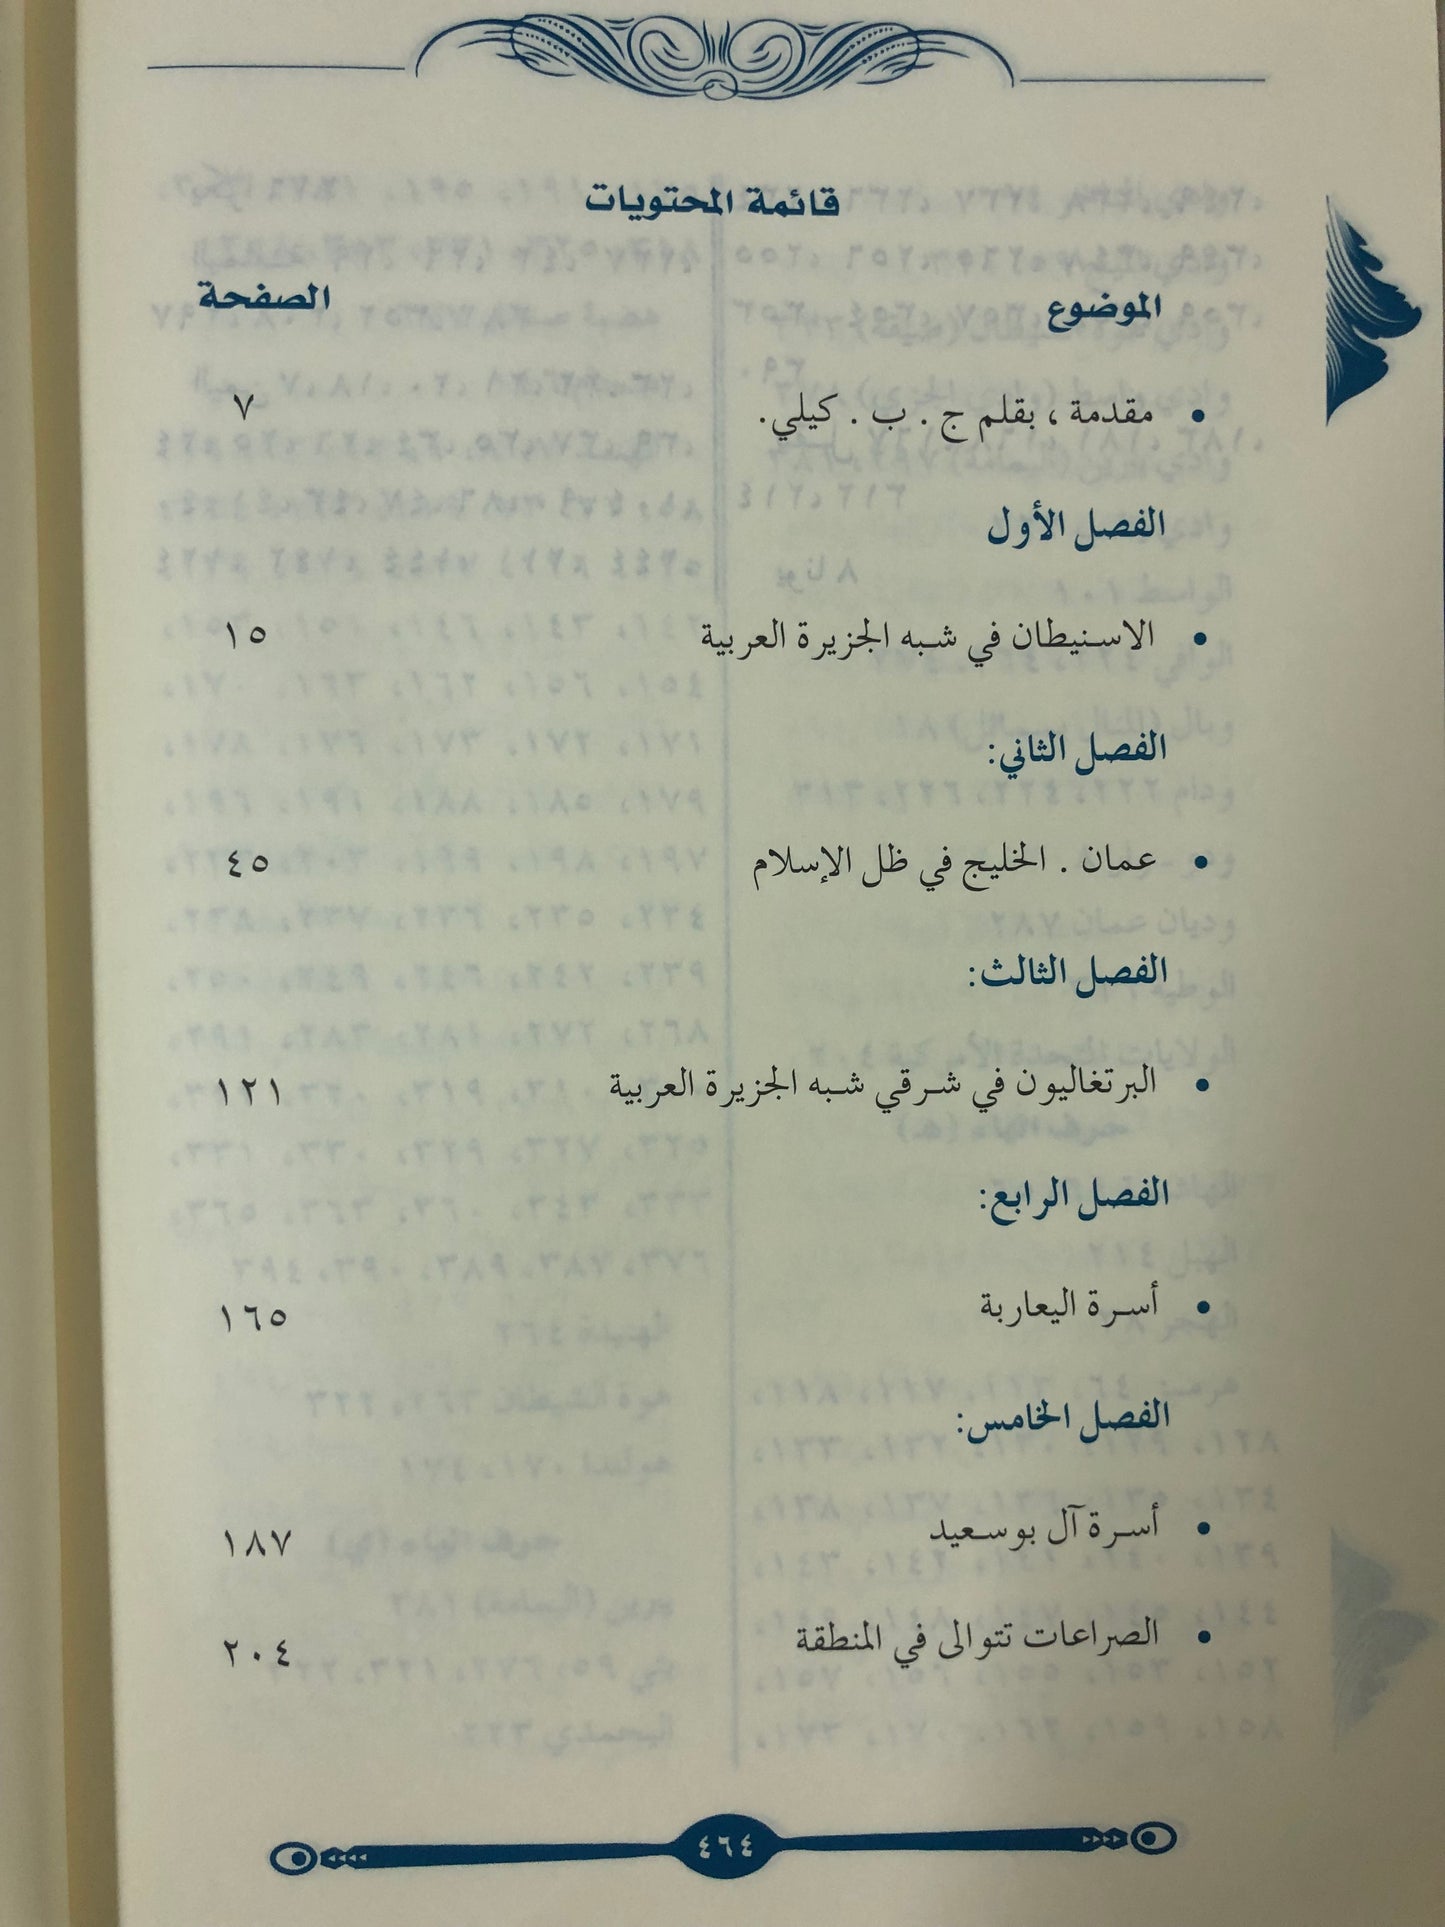 قائمة المحتويات
الموضوع الصفحة
• مقدمة ، بقلم ج . ب . كيلي. ٧
الفصل الأول
• الاسنيطان في شبه الجزيرة العربية ١٥
الفصل الثاني:
• عمان . الخليج في ظل الإسلام ٤٥
الفصل الثالث:
• البرتغاليون في شرقي شبه الجزيرة العربية ١٢١
الفصل الرابع:
• أسرة اليعاربة ١٦٥
الفصل الخامس:
• أسرة آل بوسعيد ١٨٧
• الصراعات تتوالى في المنطقة ٢٠٤
٤٦٤